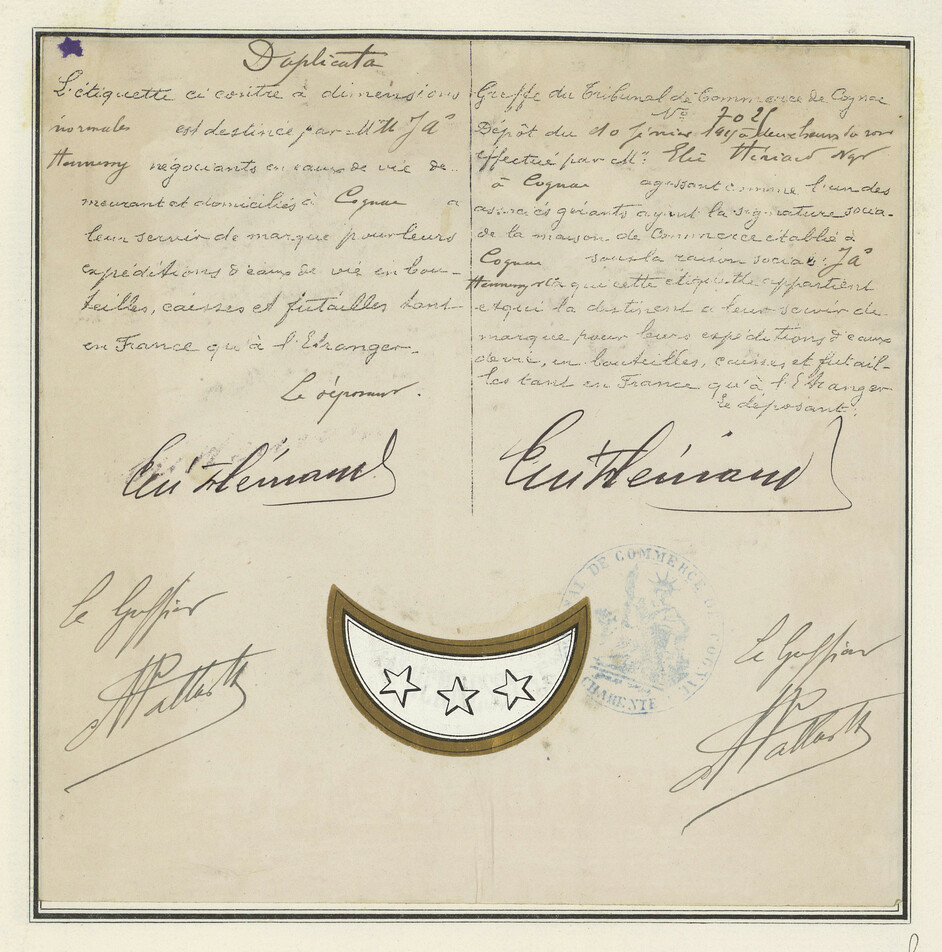 Duplicata
L'étiquette ci contre à dimensions
normales est destinée par MM Jas
Hennessy négociants en eaux de vie de-
meurant et domiciliés à Cognac a
leur servir de marque pour leurs
expéditions d'eaux de vie en bou-
teilles, caisses et futailles tant
en France qu'à l'Etranger.
Le déposant.
Greffe du Tribunal de Commerce de Cognac
No 702
Dépôt du 10 à deux heures du soir
effectué par Mr. Elie
à Cognac agissant comme l'un des
associés gérants ayant la signature socia-
le de la maison de Commerce établie à
Cognac sous la raison sociale: Jas
Hennessy & Co qui cette étiquette appartient
et qui la destinent a leur servir de
marque pour leurs expéditions d'eaux
de vie, en bouteilles, caisses et futail-
les tant en France qu'à l'Etranger
Le déposant.
Le Greffier
Le Greffier
TRIBUNAL DE COMMERCE DE COGNAC
CHARENTE